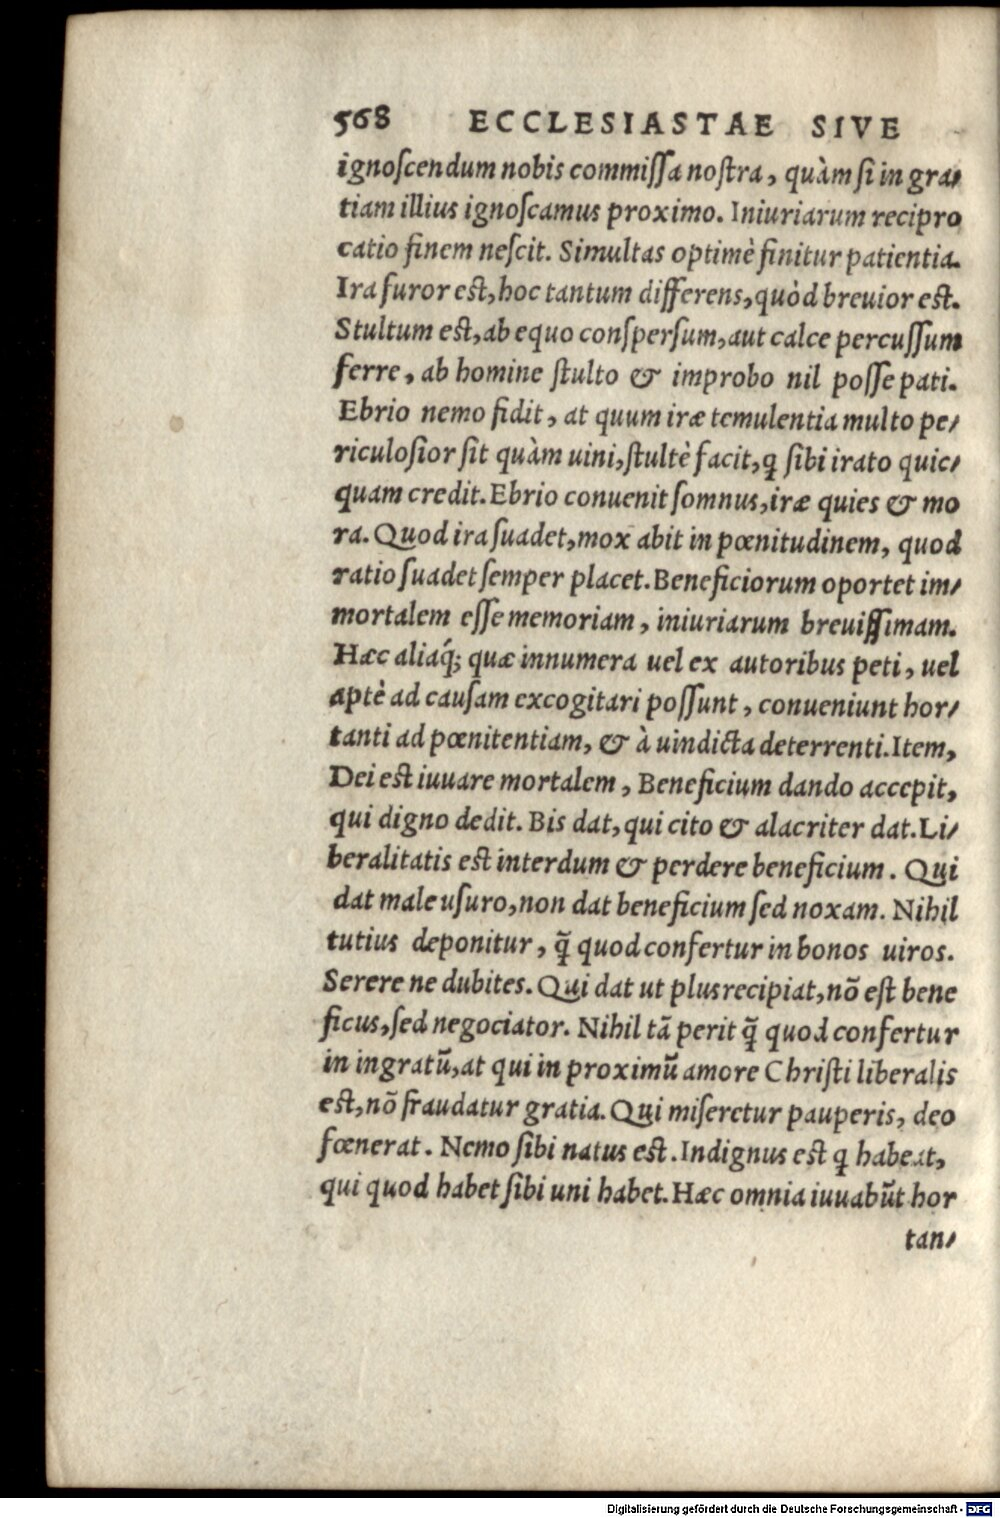 568 ECCLESIASTAE SIVE
ignoſcendum nobis commiſſa noſtra, quàm ſi in gra⸗
tiam illius ignoſcamus proximo. Iniuriarum recipro
catio finem neſcit. Simultas optimè finitur patientia.
Ira furor eſt, hoc tantum differens, quòd breuior eſt.
Stultum eſt, ab equo conſperſum, aut calce percuſſum
ferre, ab homine ſtulto & improbo nil poſſe pati.
Ebrio nemo fidit, at quum iræ temulentia multo pe⸗
riculoſior ſit quàm uini, ſtultè facit, ꝗ ſibi irato quic⸗
quam credit. Ebrio conuenit ſomnus, iræ quies & mo
ra. Quod ira ſuadet, mox abit in pœnitudinem, quod
ratio ſuadet ſemper placet. Beneficiorum oportet im⸗
mortalem eſſe memoriam, iniuriarum breuiſſimam.
Hæc aliaq́; quæ innumera uel ex autoribus peti, uel
aptè ad cauſam excogitari poſſunt, conueniunt hor⸗
tanti ad pœnitentiam, & à uindicta deterrenti. Item,
Dei eſt iuuare mortalem, Beneficium dando accepit,
qui digno dedit. Bis dat, qui cito & alacriter dat. Li⸗
beralitatis eſt interdum & perdere beneficium. Qui
dat male uſuro, non dat beneficium ſed noxam. Nihil
tutius deponitur, q̃ quod confertur in bonos uiros.
Serere ne dubites. Qui dat ut plus recipiat, nõ eſt bene
ficus, ſed negociator. Nihil tã perit q̃ quod confertur
in ingratũ, at qui in proximũ amore Chriſti liberalis
eſt, nõ fraudatur gratia. Qui miſeretur pauperis, deo
fœnerat. Nemo ſibi natus eſt. Indignus eſt ꝗ habeat,
qui quod habet ſibi uni habet. Hæc omnia iuuabũt hor
tan⸗
Digitalisierung gefördert durch die Deutsche Forschungsgemeinschaft - DFG